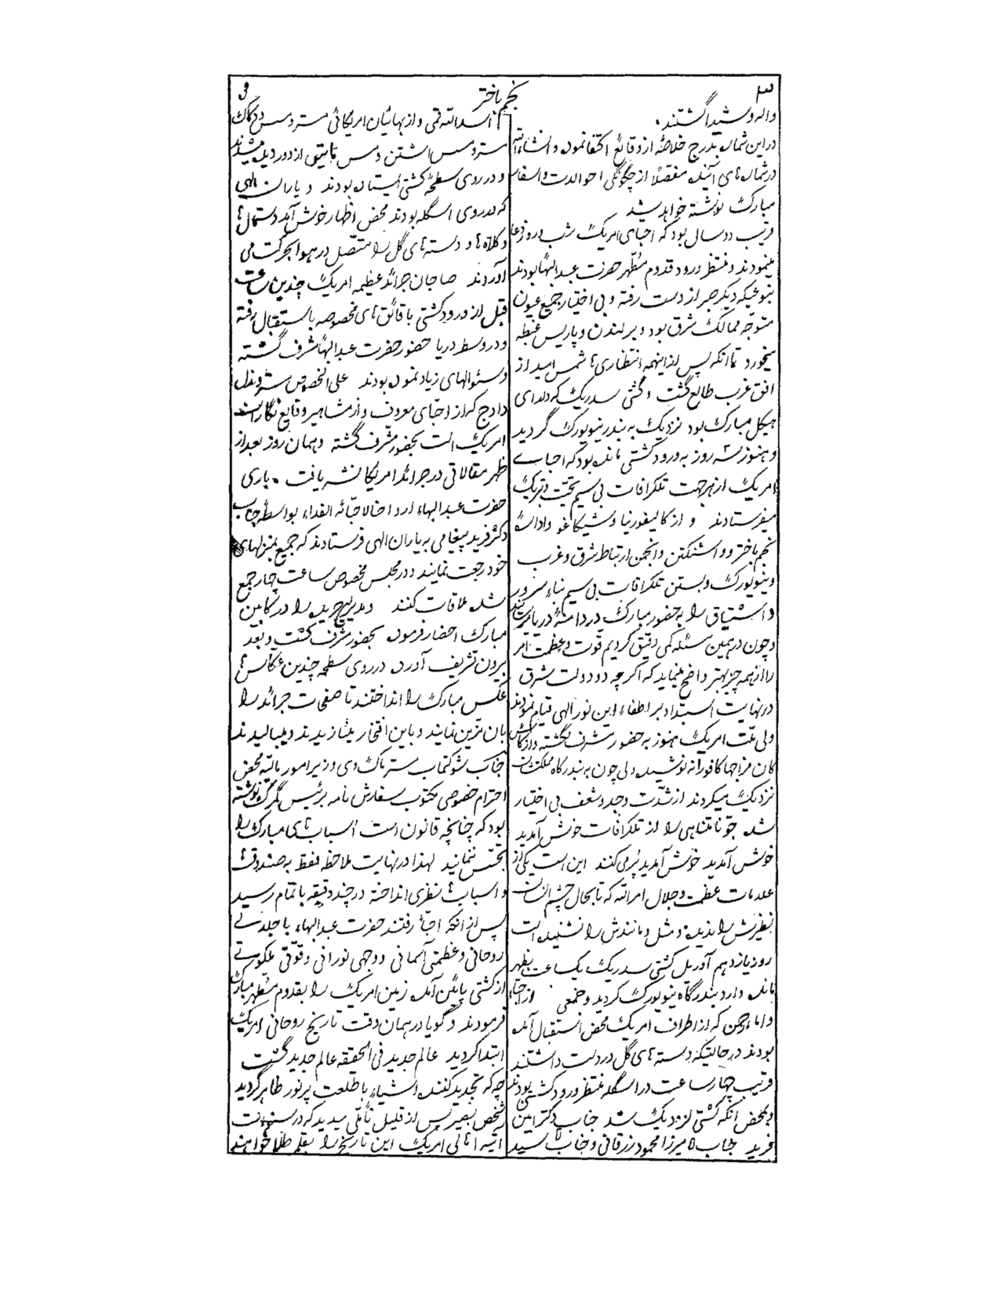 ۳ نجم باختر
واله و شیدا گشتند.
در این شماره بدرج خلاصهٔ از وقایع اکتفا نموده و انشاءالله
در شماره‌های آینده مفصلاً از چگونگی احوالات و اسفار
مبارک نوشته خواهد شد
قریب دو سال بود که احبای امریک شب و روز دعا
مینمودند و منتظر ورود قدوم مطهر حضرت عبدالبهاء بودند
بنوعیکه دیگر صبر از دست رفته و بی اختیار جمیع عیون
متوجه ممالک شرق بود و بر لندن و پاریس غبطه
میخورد تا آنکه پس از اینهمه انتظاری‌ها شمس امید از
افق غرب طالع گشت و کشتی سدریک که دارای
هیکل مبارک بود نزدیک به بندر نیویورک گردید
و هنوز سه روز به ورود کشتی مانده بود که احبای
امریک از هر جهت تلگرافات بی سیم تحیت و تبریک
میفرستادند و از کالیفورنیا و شیکاغو و اداره
نجم باختر و واشنگتن و انجمن ارتباط شرق و غرب
و نیویورک و بستن تلگرافات بی سیم بناء سرور
و اشتیاق را به حضور مبارک در دامنهٔ دریا
و چون در همین مسئله کمی دقیق گردیم قوت و عظمت امر
را از همه چیز بهتر واضح مینماید که اگر چه دو دولت شرق
در نهایت استبداد بر اطفاء این نور الهی قیام نمودند
ولی ملت امریک هنوز به حضور مشرف نگشته و از کأس
کان مزاجها کافورا ننوشیده ولی چون به بندرگاه مملکتشان
نزدیک میگردند از شدت وجد و شعف بی اختیار
شده جو نامتناهی را از تلگرافات خوش آمدید
خوش آمدید خوش آمدید پر می کنند این است یکی از
علامات عظمت و جلال امرالله که تا بحال چشم انسان
نظیرش را ندیده و مثل و مانندش را نشنیده است
روز یازدهم آوریل کشتی سدریک یک ساعت بظهر
مانده وارد بندرگاه نیویورک گردید و جمعی از احبا
و اماء رحمن که از اطراف امریک محض استقبال آمده
بودند در حالتیکه دسته های گل در دست داشتند
قریب چهار ساعت در اسکله منتظر ورود کشتی بودند
و بمحض آنکه کشتی نزدیک شد جناب دکتر امین
فرید جناب آمیرزا محمود زرقانی و جناب آسید
اسدالله قمی و از بهائیان امریکائی مستر و مسس
مستر و مسس اشتن و مس از دور دیده میشدند
و در روی سطحهٔ کشتی ایستاده بودند و یاران الهی
که در روی اسکله بودند محض اظهار خوش آمد دستمالها
و کلاه ها و دسته های گل را متصل در هوا بحرکت می
آوردند صاحبان جرائد عظیمه امریک چندین ساعت
قبل از ورود کشتی با قائق های مخصوصه باستقبال رفته
و در وسط دریا حضور حضرت عبدالبهاء مشرف گشته
و سئوالهای زیاد نموده بودند علی الخصوص مستر وندل
دادج که از احبای معروف و از مشاهیر وقایع نگار
امریک است بحضور مشرف گشته و همان روز بعد از
ظهر مقالاتی در جرائد امریکا نشر یافت . باری
حضرت عبدالبهاء ارواحنا لاحبائه الفداء بواسطهٔ جناب
دکتر فرید پیغامی به یاران الهی فرستادند که جمیع بمنزلهای
خود رجعت نمایند و در مجلس مخصوص ساعت چهار جمع
شده ملاقات کنند و مدیر جریده را در کابین
مبارک احضار فرموده بحضور مشرف گشت و بعد
بیرون تشریف آورده در روی سطحه چندین عکاس‌ها
عکس مبارک را انداختند تا صفحات جرائد را
بان مزین نمایند و باین افتخار بنازیدند و ببالیدند
جناب وزیر امور مالیه محض
احترام خصوصی مکتوب سفارش نامه برئیس گمرک نوشته
بود که چنانچه قانون است اسباب های مبارک را
تجسس ننمایند لهذا در نهایت ملاحظه فقط به صندوقها
و اسباب ها نظری انداخته در چند دقیقه باتمام رسید
پس از آنکه احبا رفتند حضرت عبدالبهاء با جلالتی
روحانی و عظمتی آسمانی و وجهی نورانی و قوتی ملکوتی
از کشتی پائین آمده زمین امریک را بقدوم مطهر مبارک
فرمودند و گویا در همان دقت تاریخ روحانی امریک
ابتدا گردید عالم جدید فی الحقیقه عالم جدید گشت
چه که تجدید کننده اشیاء با طلعت پرنور ظاهر گردید
شخص بصیر پس از قلیل تأملی میدید که در سنوات
آتیه اهالی امریک این تاریخ را بقلم طلا خواهند